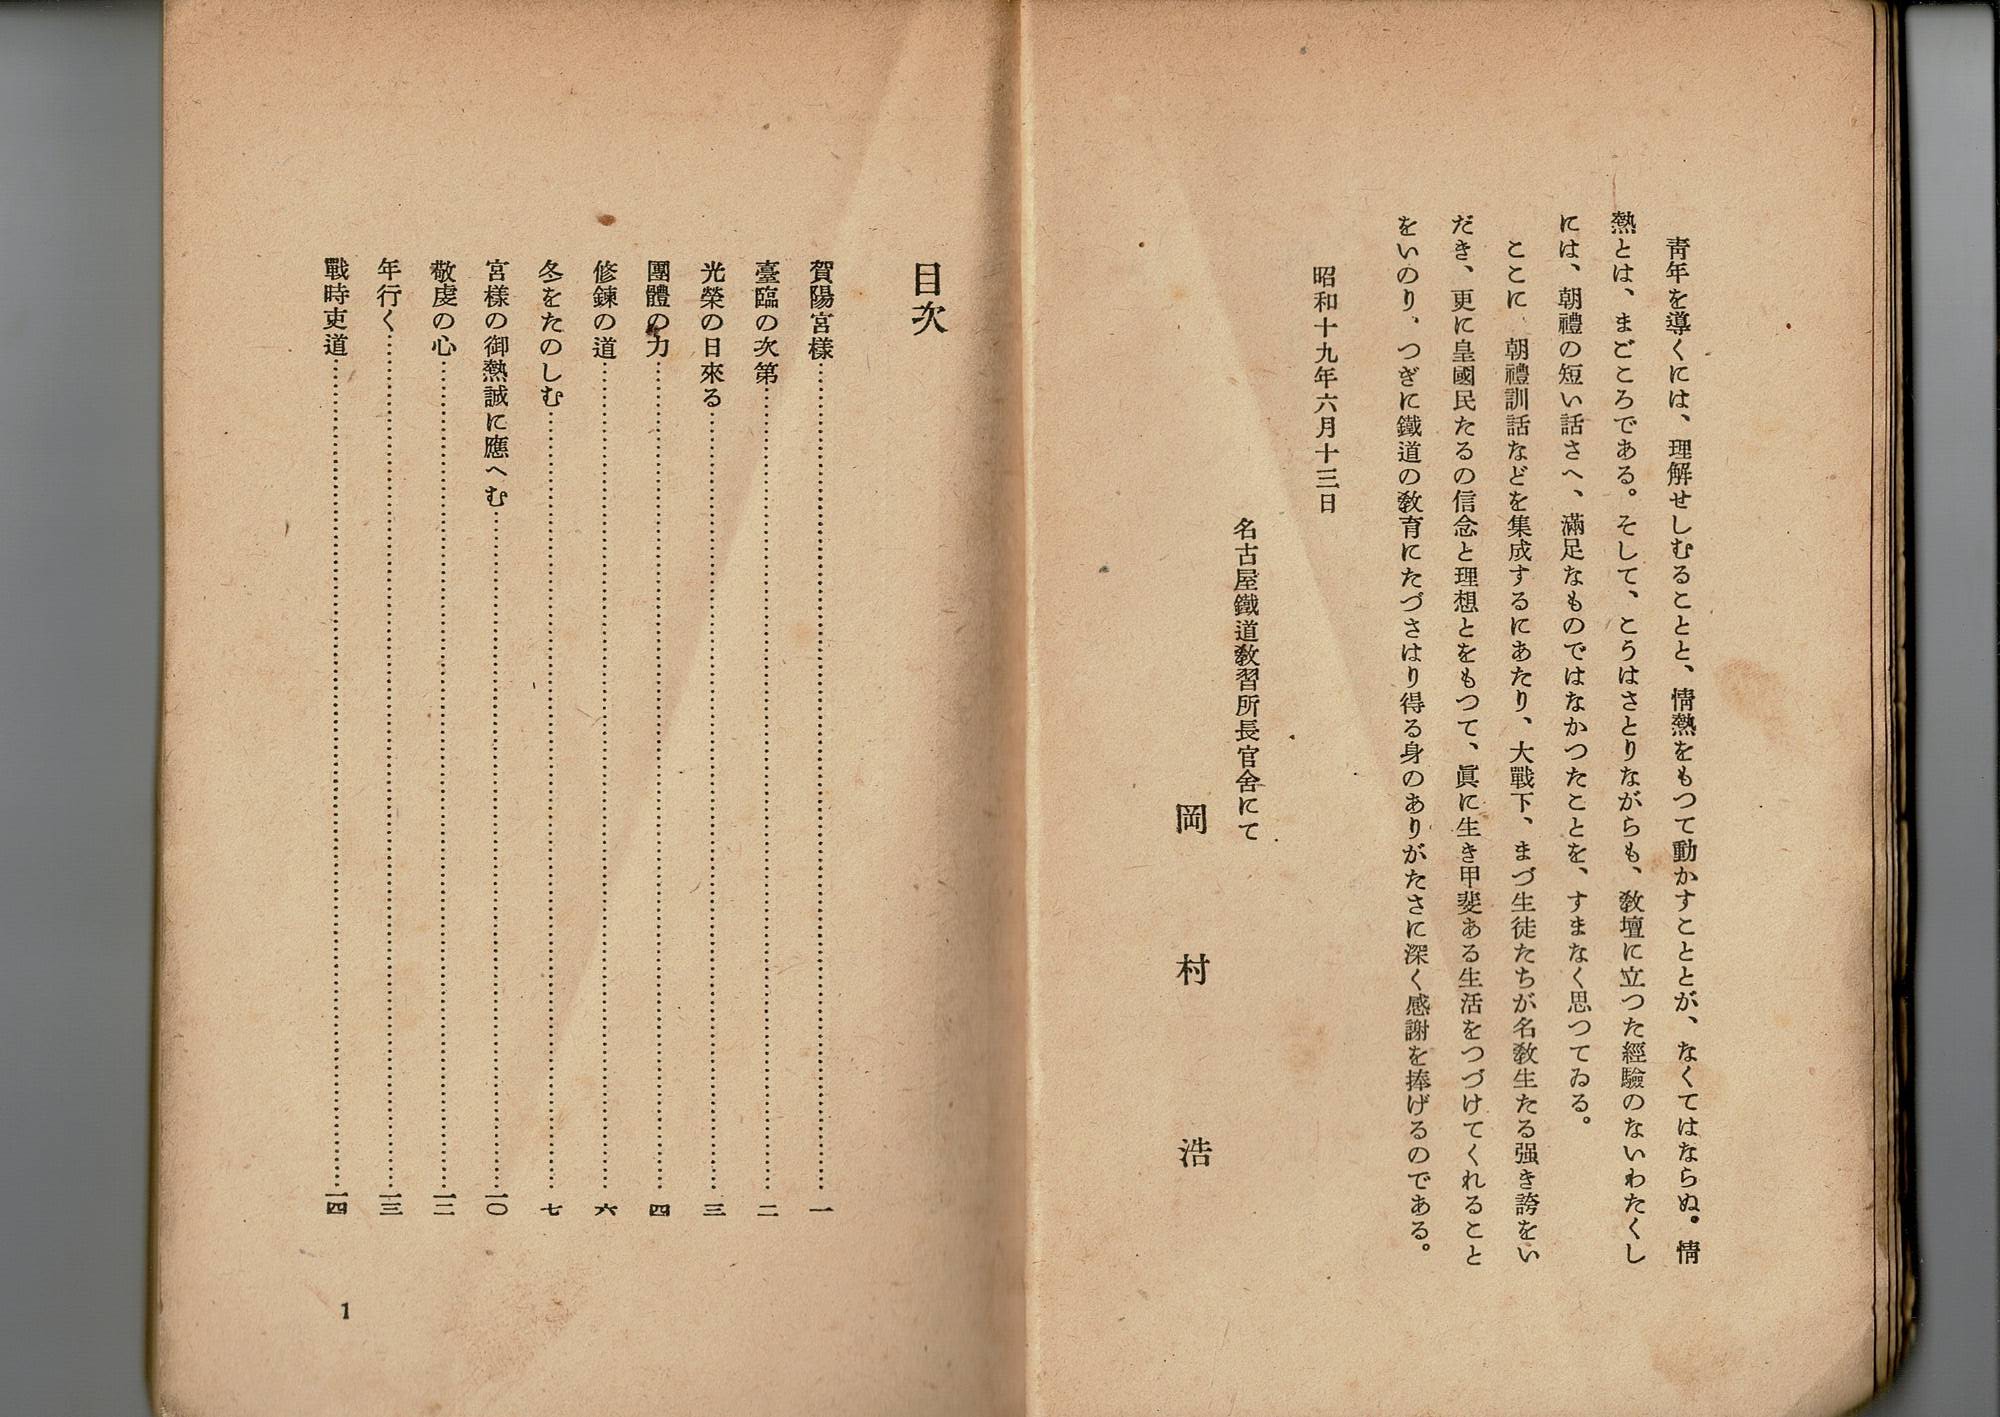 靑年を導くには、理解せしむることと、情熱をもつて動かすこととが、なくてはならぬ。情
熱とは、まごころである。そして、こうはさとりながらも、敎壇に立つた經驗のないわたくし
には、朝禮の短い話さへ、滿足なものではなかつたことを、すまなく思つてゐる。
ここに、朝禮訓話などを集成するにあたり、大戰下、まづ生徒たちが名敎生たる强き誇をい
だき、更に皇國民たるの信念と理想とをもつて、眞に生き甲斐ある生活をつづけてくれること
をいのり、つぎに鐵道の敎育にたづさはり得る身のありがたさに深く感謝を捧げるのである。
昭和十九年六月十三日
名古屋鐵道敎習所長官舍にて
岡村浩
目次
賀陽宮樣…………一
臺臨の次第…………二
光榮の日來る…………三
團體の力…………四
修鍊の道…………六
冬をたのしむ…………七
宮樣の御熱誠に應へむ…………一〇
敬虔の心…………一二
年行く…………一三
戰時吏道…………一四
1